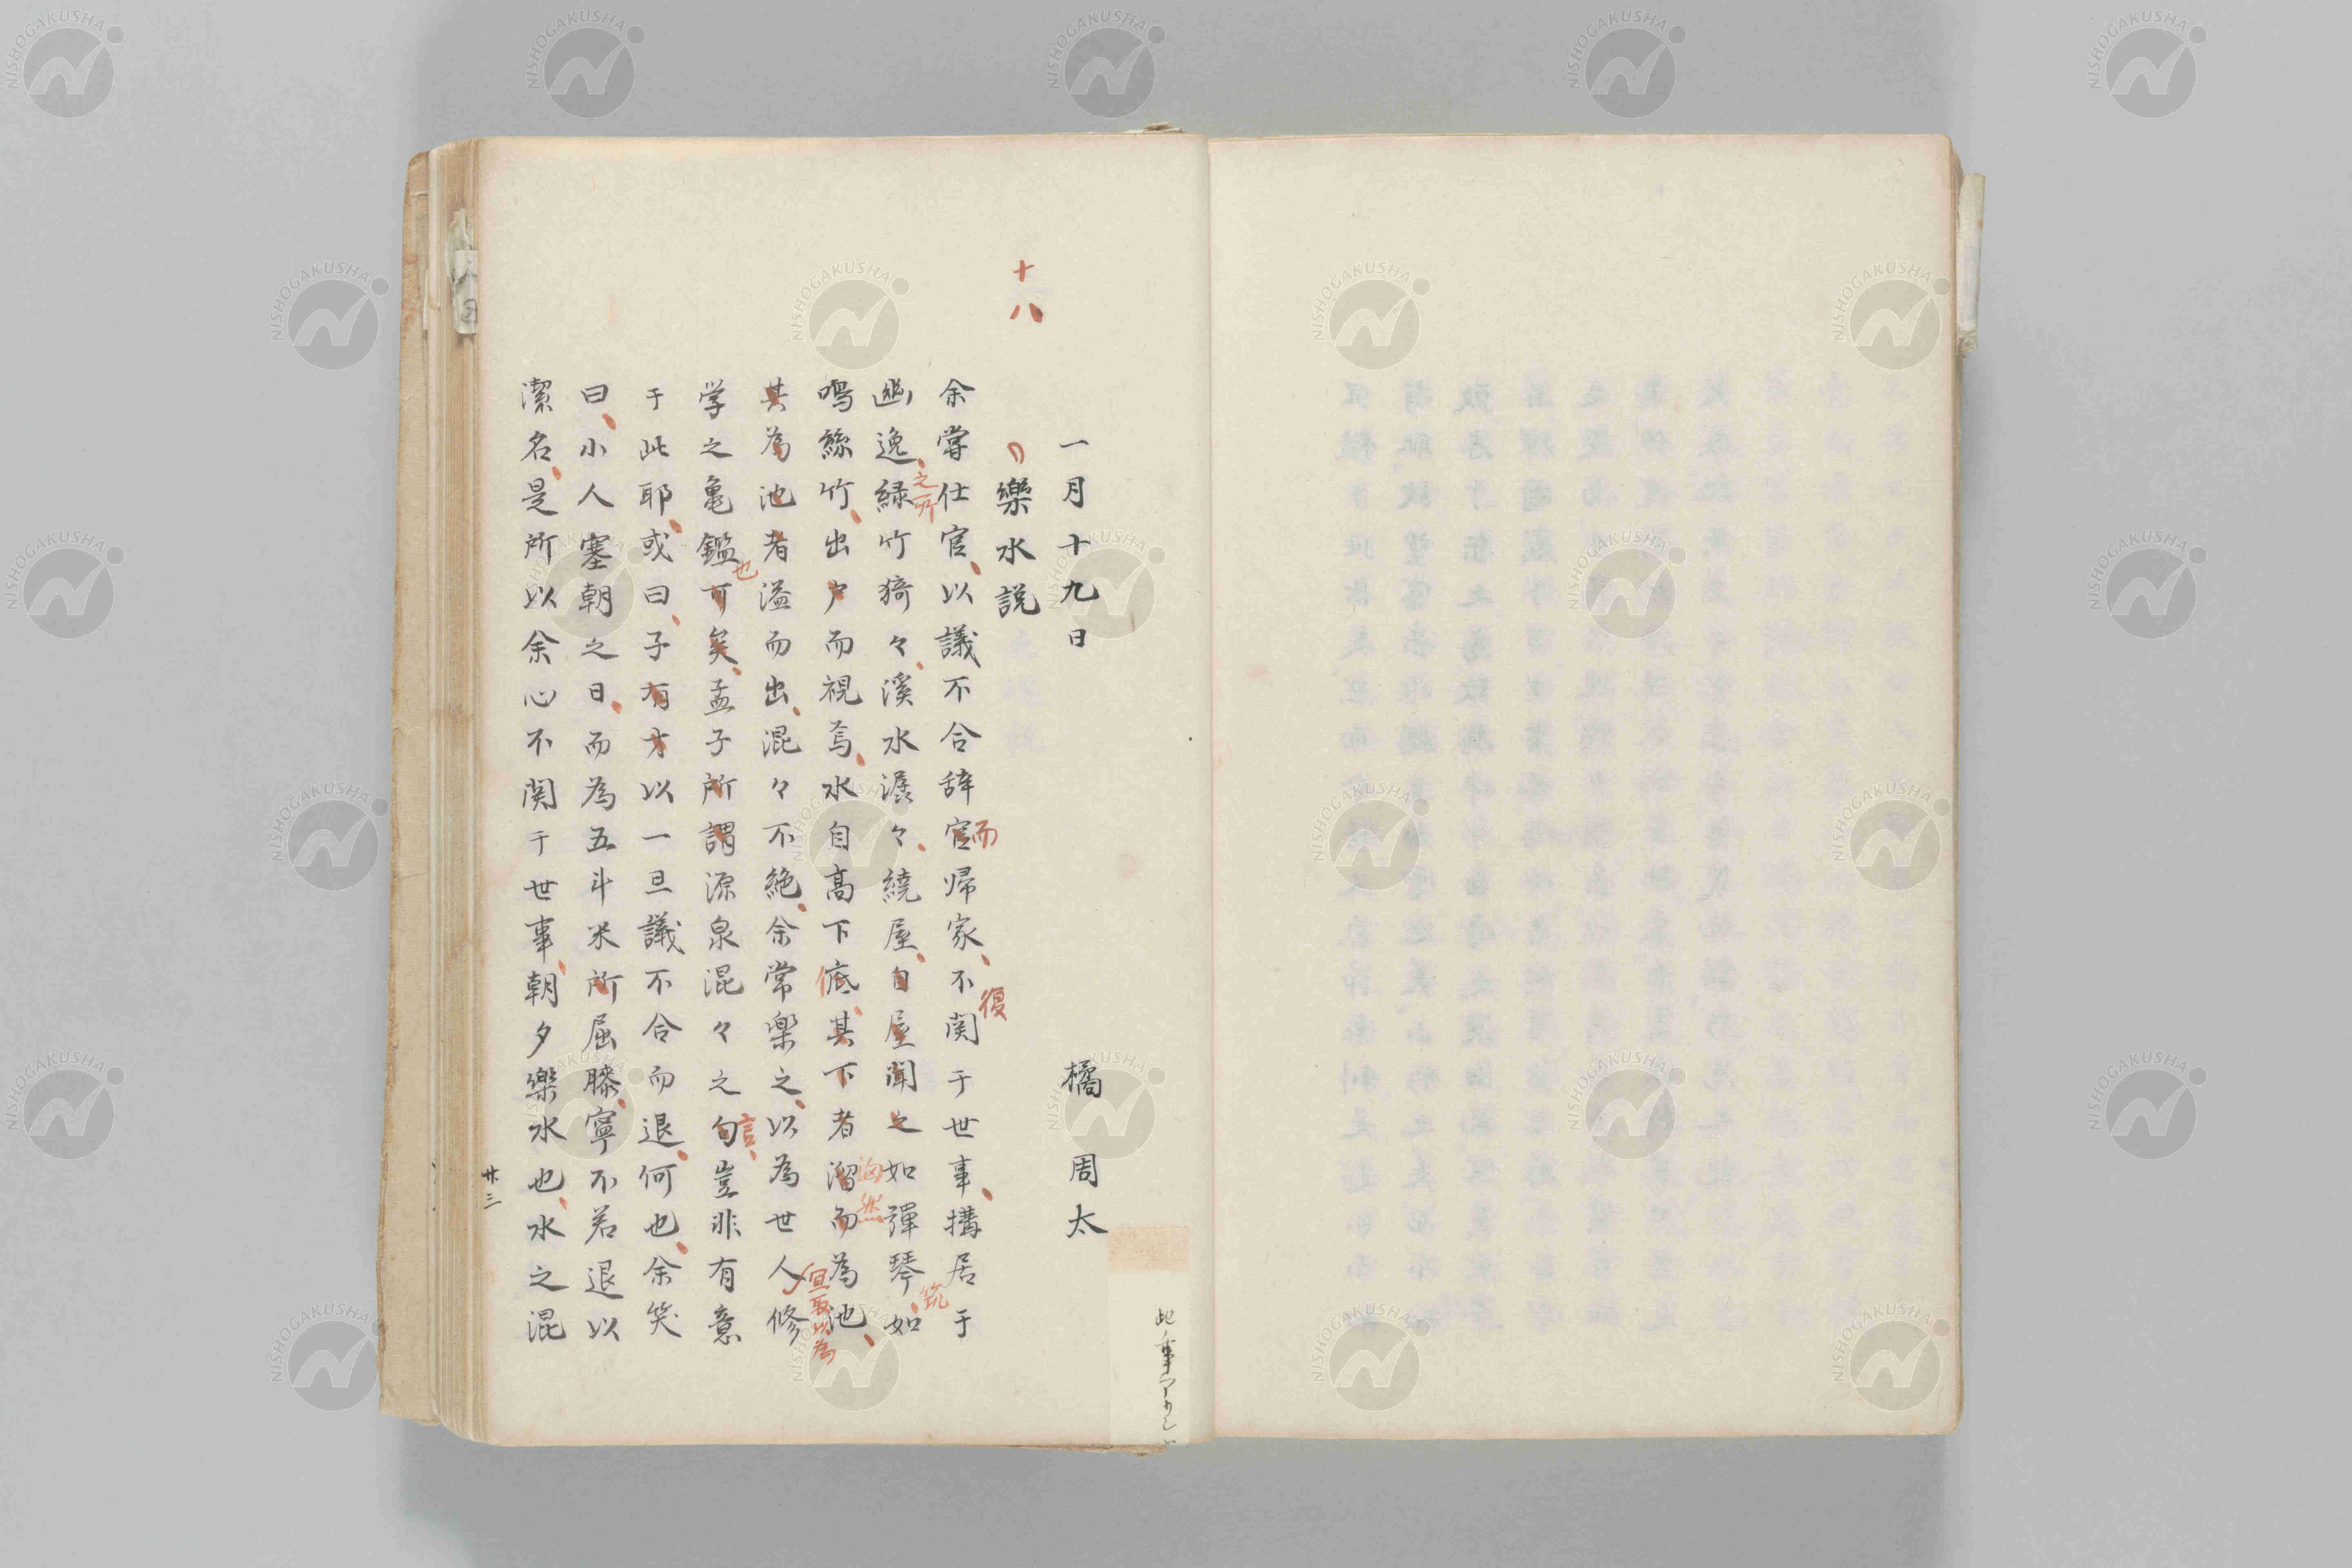 一月十九日　橘周太
十八
樂水説
余嘗仕官以議不合辞官帰家不関于世事搆居于
而
復
幽逸緑竹猗々溪水潺々繞屋自屋聞之如彈琴如
之所
筑
鳴絲竹出戸而視焉水自高下底其下者溜而為池
其為池者溢而出混々不絶余常樂之以為世人修
宜取以為
学之亀鑑可矣孟子所謂源泉混々之句豈非有意
也
言
于此耶或曰子有才以一旦議不合而退何也余笑
曰小人塞朝之日而為五斗米所屈膝寧不若退以
潔名是所以余心不関于世事朝夕樂水也水之混
廿三
NISHOGAKUSHA